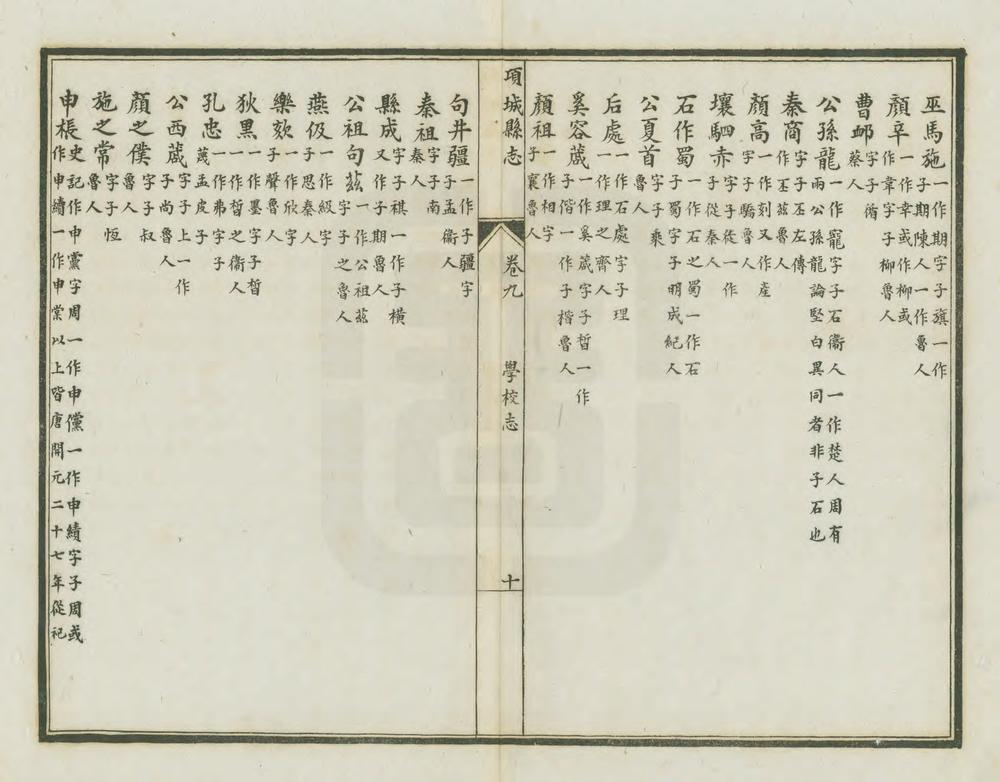 巫馬施一作期字子旗一作子期陳人一作魯人
顏辛一作幸或作柳或作韋字子柳魯人
曹卹字子循蔡人
公孫龍一作寵字子石衞人一作楚人周有兩公孫龍論堅白異同者非子石也
秦商字子丕左傳作丕玆魯人
顏高一作刻又作產字子驕魯人
壤駟赤字子徒一作子從秦人
石作蜀一作石之蜀一作石子蜀字子明成紀人
公夏首字子乘魯人
后處一作石處字子理一作理之齊人
奚容蒧一作奚蒧字子晳一作子偕一作子楷魯人
顏祖一作相字子襄魯人
項城縣志
卷九
學校志
十
句井疆一作子疆字子孟衞人
秦祖字子南秦人
縣成字子祺一作子橫又作子期魯人
公祖句玆一作公祖玆字子之魯人
燕伋一作級字子思秦人
樂欬一作欣字子聲魯人
狄黑一作墨字子晳一作晳之衞人
孔忠一作弗字子蔑孟皮子
公西蒧字子上一作子尚魯人
顏之僕字子叔魯人
施之常字子恆魯人
申棖史記作申黨字周一作申儻一作申續字子周或作申續一作申棠以上皆唐開元二十七年從祀